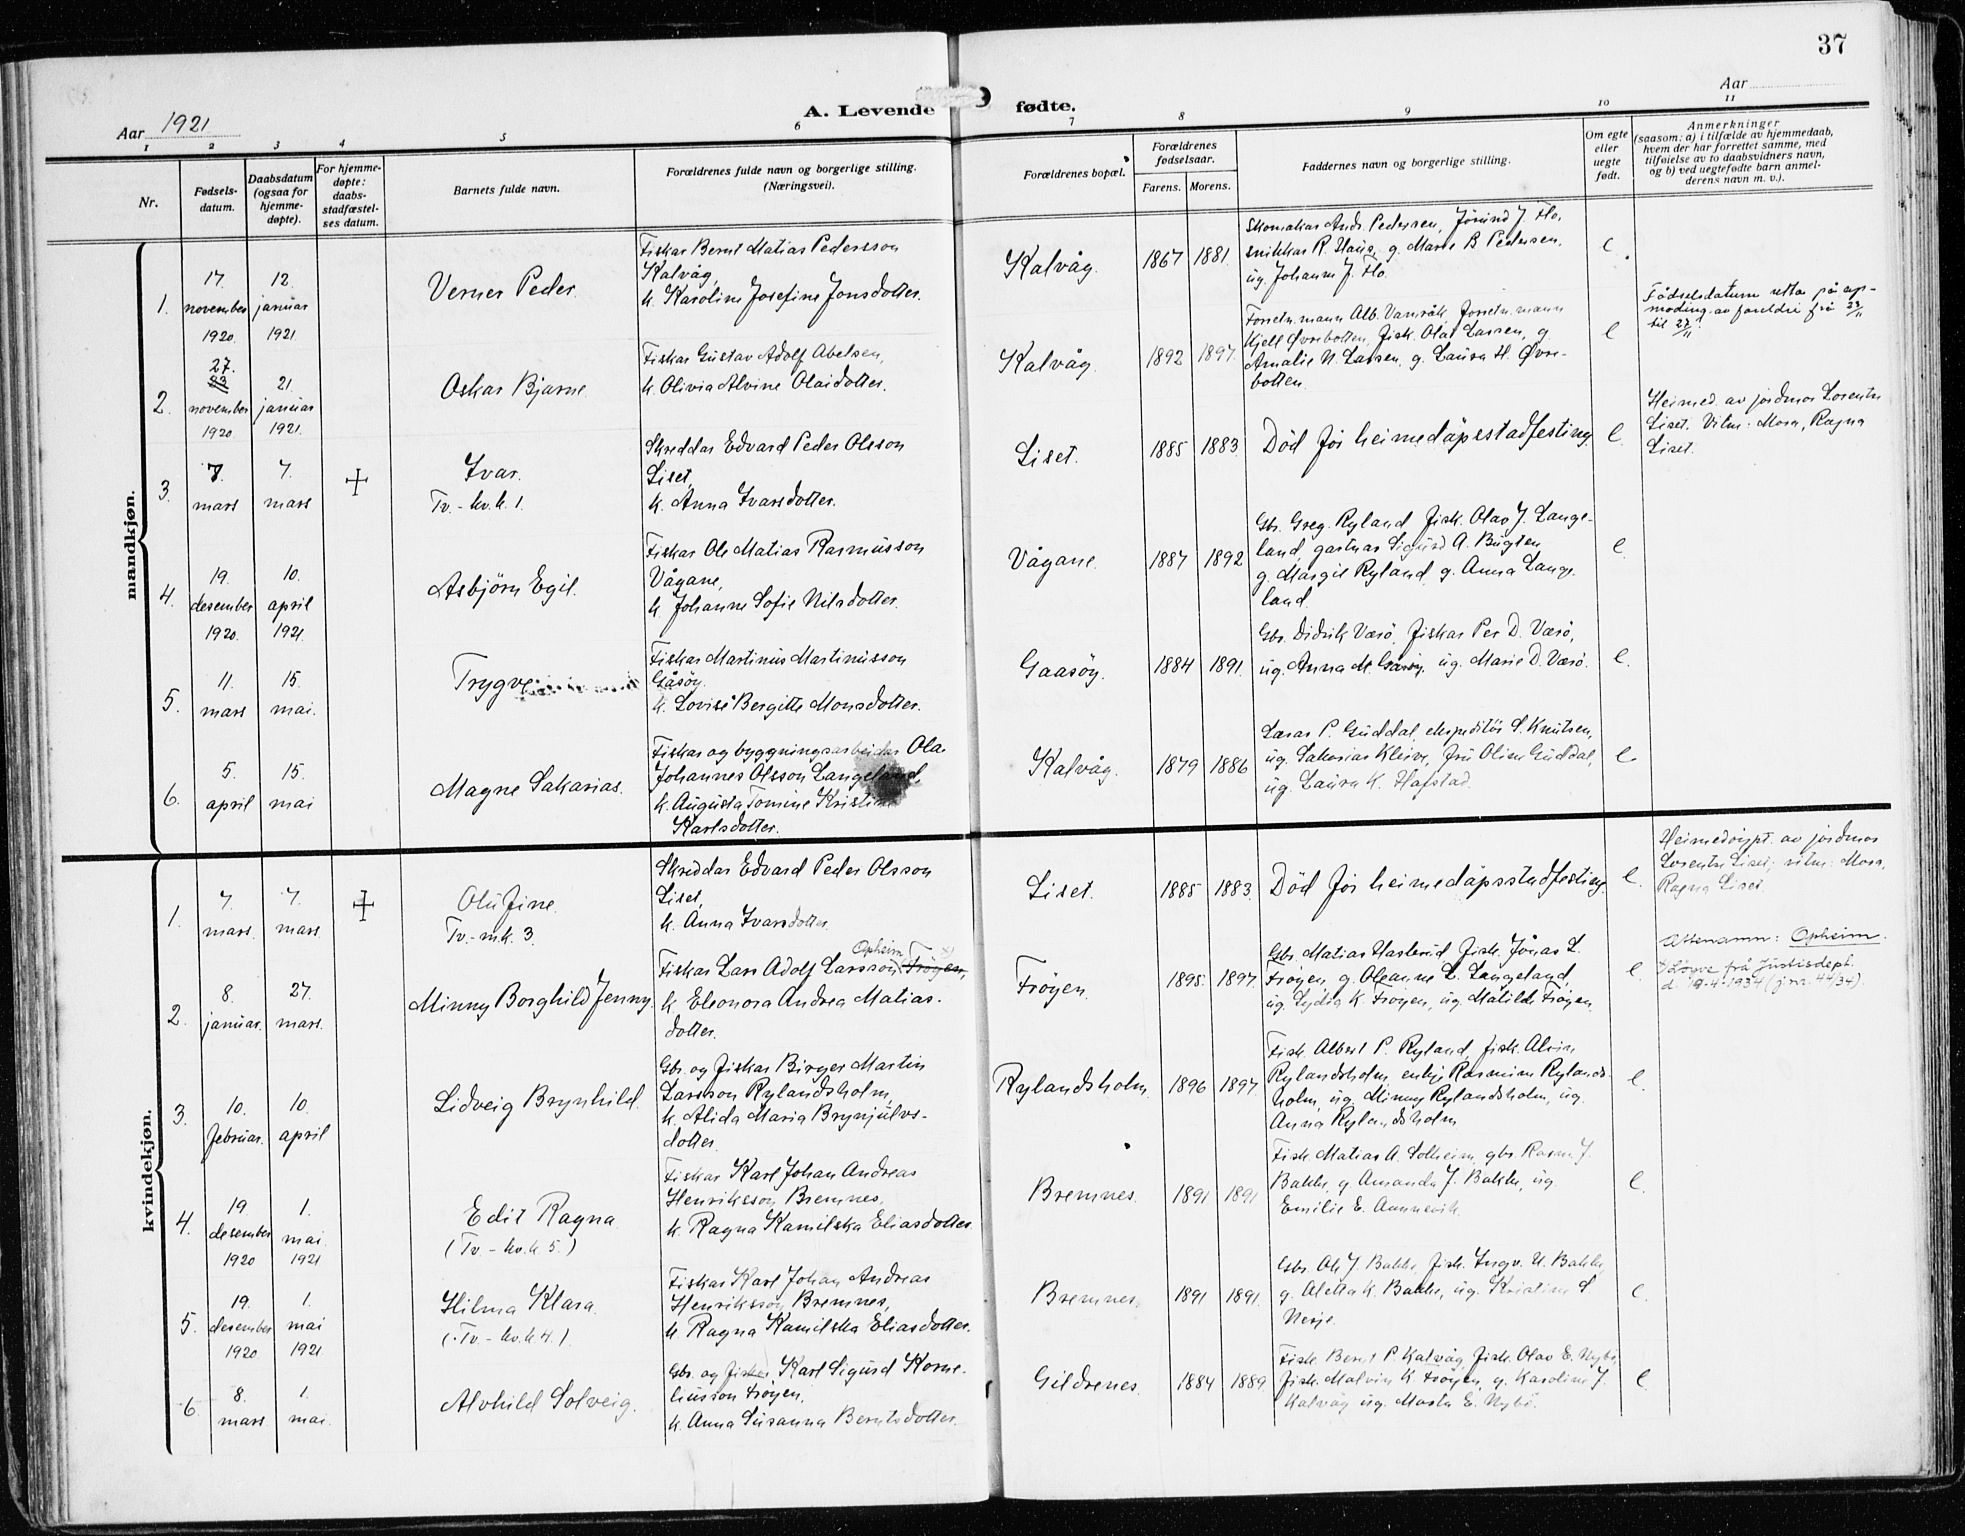 37
Aar 1921
A. Levende fødte.
Aar
1 2 3 4 5 6 7 8 9 10 11
Nr.
Fødsels-
datum.
Daabsdatum
(ogsaa for
hjemme-
døpte).
For hjemme-
døpte:
daabs-
stadfæstel-
ses datum.
Barnets fulde navn.
Forældrenes fulde navn og borgerlige stilling.
(Næringsvei).
Forældrenes bopæl.
Forældrenes
fødselsaar.
Farens. Morens.
Faddernes navn og borgerlige stilling.
Om egte
eller
uegte
født.
Anmerkninger
(saasom: a) i tilfælde av hjemmedaab,
hvem der har forrettet samme, med
tilføielse av to daabsvidners navn,
og b) ved uegtefødte barn anmel-
derens navn m. v.).
mandkjøn.
1.
17.
november
1920.
12.
januar
1921
Verner Peder.
Fiskar Bernt Matias Pedersson
Kalvåg,
k. Karoline Josefine Jonsdotter.
Kalvåg.
1867 1881.
Skomakar Andr. Pedersen, Jørund J. Flo,
snikkar R. Haug, g. Marie B. Pedersen,
ug. Johanne J. Flo.
e
2.
27.
23
november
1920.
21
januar
1921.
Oskar Bjarne
Fiskar Gustav Adolf Abelsen,
k. Olivia Alvine Olaidotter.
Kalvåg.
1892 1897.
Forretn.mann Alb. Vamråk, forretn.mann
Kjell Øvrebotten, fisk. Olai Larsen, g
Amalie N. Larsen, g. Laura H. Øvre-
botten.
e
Fødselsdatum retta på op-
moding av foreldri frå 23/11
til 27/11.
3.
7.
mars
7.
mars
Ivar.
Tv. - kv.k. 1.
Skreddar Edvard Peder Olsson
Liset,
k. Anna Ivarsdotter.
Liset.
1885 1883.
Død før heimedåpsstadfesting
e.
Heimed. av jordmor Lorentse
Liset. Vitn: Mora, Ragna
Liset.
4.
19.
desember
1920.
10.
april
1921.
Asbjørn Egil.
Fiskar Ole Matias Rasmusson
Vågane,
k. Johanne Sofie Nilsdotter.
Vågane.
1887 1892
Gbr. Greg. Ryland, fisk. Olav J. Lange-
land, gartnar Sigurd A. Bugten
g. Margit Ryland, g. Anna Lange-
land.
e.
5.
11.
mars
15.
mai.
Trygve
Fiskar Martinus Martinusson
Gåsøy.
k. Lovise Bergitte Monsdotter.
Gaasøy.
1884 1891.
Gbr. Didrik Værø, fiskar Per D. Værø,
ug. Anna M. Gåsøy, ug. Marie D. Værø.
e.
6.
5.
april
15.
mai
Magne Sakarias.
Fiskar og byggningsarbeidar Ola
Johannes Olsson Langeland,
k. Augusta Tomine Kristine
Karlsdotter.
Kalvåg.
1879 1886
Lærar P. Guddal, ekspeditør S. Knutsen,
ug. Sakarias Kleive, fru Oline Guddal,
ug. Laura K. Hafstad.
e.
kvindekjøn.
1.
7.
mars.
7.
mars.
Olufine.
Tv. - m.k. 3.
Skreddar Edvard Peder Olsson
Liset,
k. Anna Ivarsdotter.
Liset.
1885 1883.
Død før heimedåpsstadfesting
e.
Heimedøypt. av jordmor
Lorentse Liset; vitn: Mora,
Ragna Liset.
2.
8.
januar.
27.
mars.
Minny Borghild Jenny.
Opheim
Fiskar Lars Adolf Larsson Frøyen,
k. Eleonora Andrea Matias-
dotter.
Frøyen.
1895. 1897.
Gbr. Matias Hasterud, fisk. Jonas L.
Frøyen, g. Oleanne L. Langeland,
ug. Lydia K. Frøyen, ug. Matilde Frøyen.
e.
Ættenamn: Opheim.
Løyve frå Justisdept.
d. 19-4-1934 (j.nr. 44/34).
3.
10.
februar.
10.
april
Lidveig Brynhild.
Gbr. og fiskar Birger Martin
Larsson Rylandsholm,
k. Alida Maria Brynjulvs-
dotter.
Rylandsholm.
1896 1897
Fisk. Albert P. Ryland, fisk. Alvin
Rylandsholm, enkje Rasmine Rylands-
holm, ug. Minny Rylandsholm, ug.
Anna Rylandsholm
e.
4.
19.
desember
1920
1.
mai.
1921
Edit Ragna.
(Tv - kv.k 5.)
Fiskar Karl Johan Andreas
Henriksson Bremnes,
k. Ragna Kamilska Eliasdotter.
Bremnes.
1891 1891
Fisk. Matias A. Solheim, gbr. Rasm. J.
Bakke, g. Amanda J. Bakke, ug.
Emilie E. Aunnevik.
e.
5.
19.
desember
1920
1.
mai
1921
Hilma Klara.
(Tv - kv.k. 4.)
Fiskar Karl Johan Andreas
Henriksson Bremnes,
k. Ragna Kamilska Eliasdotter.
Bremnes.
1891 1891.
Gbr. Ole J. Bakke, fisk. Ingv. H. Bakke,
g. Aletta K. Bakke, ug. Kristine S.
Nesje.
e.
6.
8.
mars
1.
mai.
Alvhild Solveig.
Gbr. og fisker Karl Sigurd Korne-
liusson Frøyen,
k. Anna Susanna Berntsdotter.
Gildrenes.
1884 1889.
Fisk. Bernt P. Kalvåg, fisk. Olav E. Nybø,
fisk. Malvin K. Frøyen, g. Karoline J.
Kalvåg ug. Marta E. Nybø.
e.